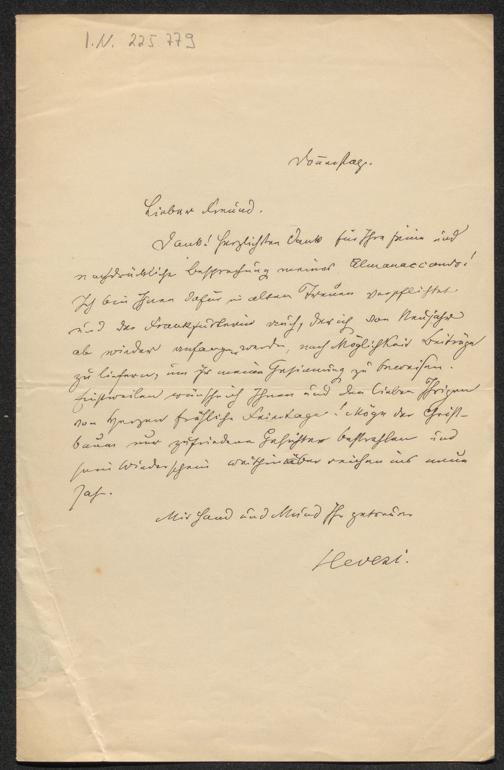 I.N. 225 779
Donnerstag.
Lieber Freund.
Dank! Herzlichsten Dank für Ihre feine und
nachdrückliche Besprechung meines Almanaccando!
Ich bin Ihnen dafür in alten Treuen verpflichtet
und der Frankfurterin auch, der ich von Neujahr
ab wieder anfangen werde, nach Möglichkeit Beiträge
zu liefern, um Ihr meine Gesinnung zu beweisen.
Einstweilen wünsche ich Ihnen und den lieben Ihrigen
von Herzen fröhliche Feiertage! Möge der Christ-
baum nur zufriedene Gesichter bestrahlen und
sein Widerschein weithinüber reichen ins neue
Jahr.
Mit Hand und Mund Ihr getreuer
Hevesi.